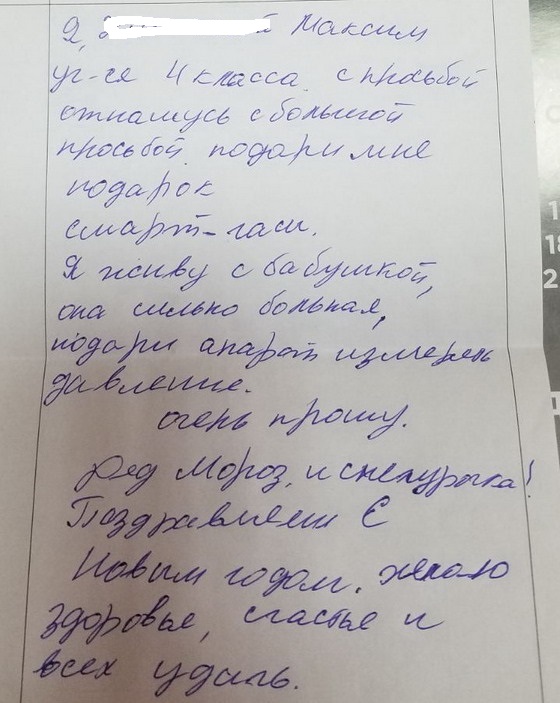 Я, й Максим
уг-ся 4 класса. с просьбой
отнашусь с большой
просьбой. подари мне
подарок
смарт-часы.
Я живу с бабушкой,
она сильно больная,
подари апарат измерять
давление.
очень прошу.
Дед Мороз, и снегурочка!
Поздравляем С
Новым годом. желаю
здоровье, счастье и
всех удачь.
1
18
2